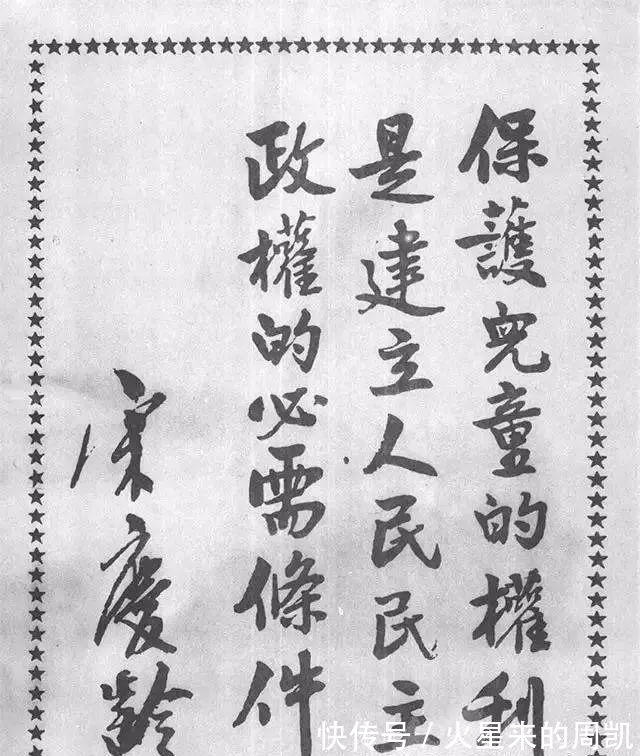 保護兒童的權利
是建立人民民主
政權的必需條件
宋慶齡
快传号/火星来的周凯